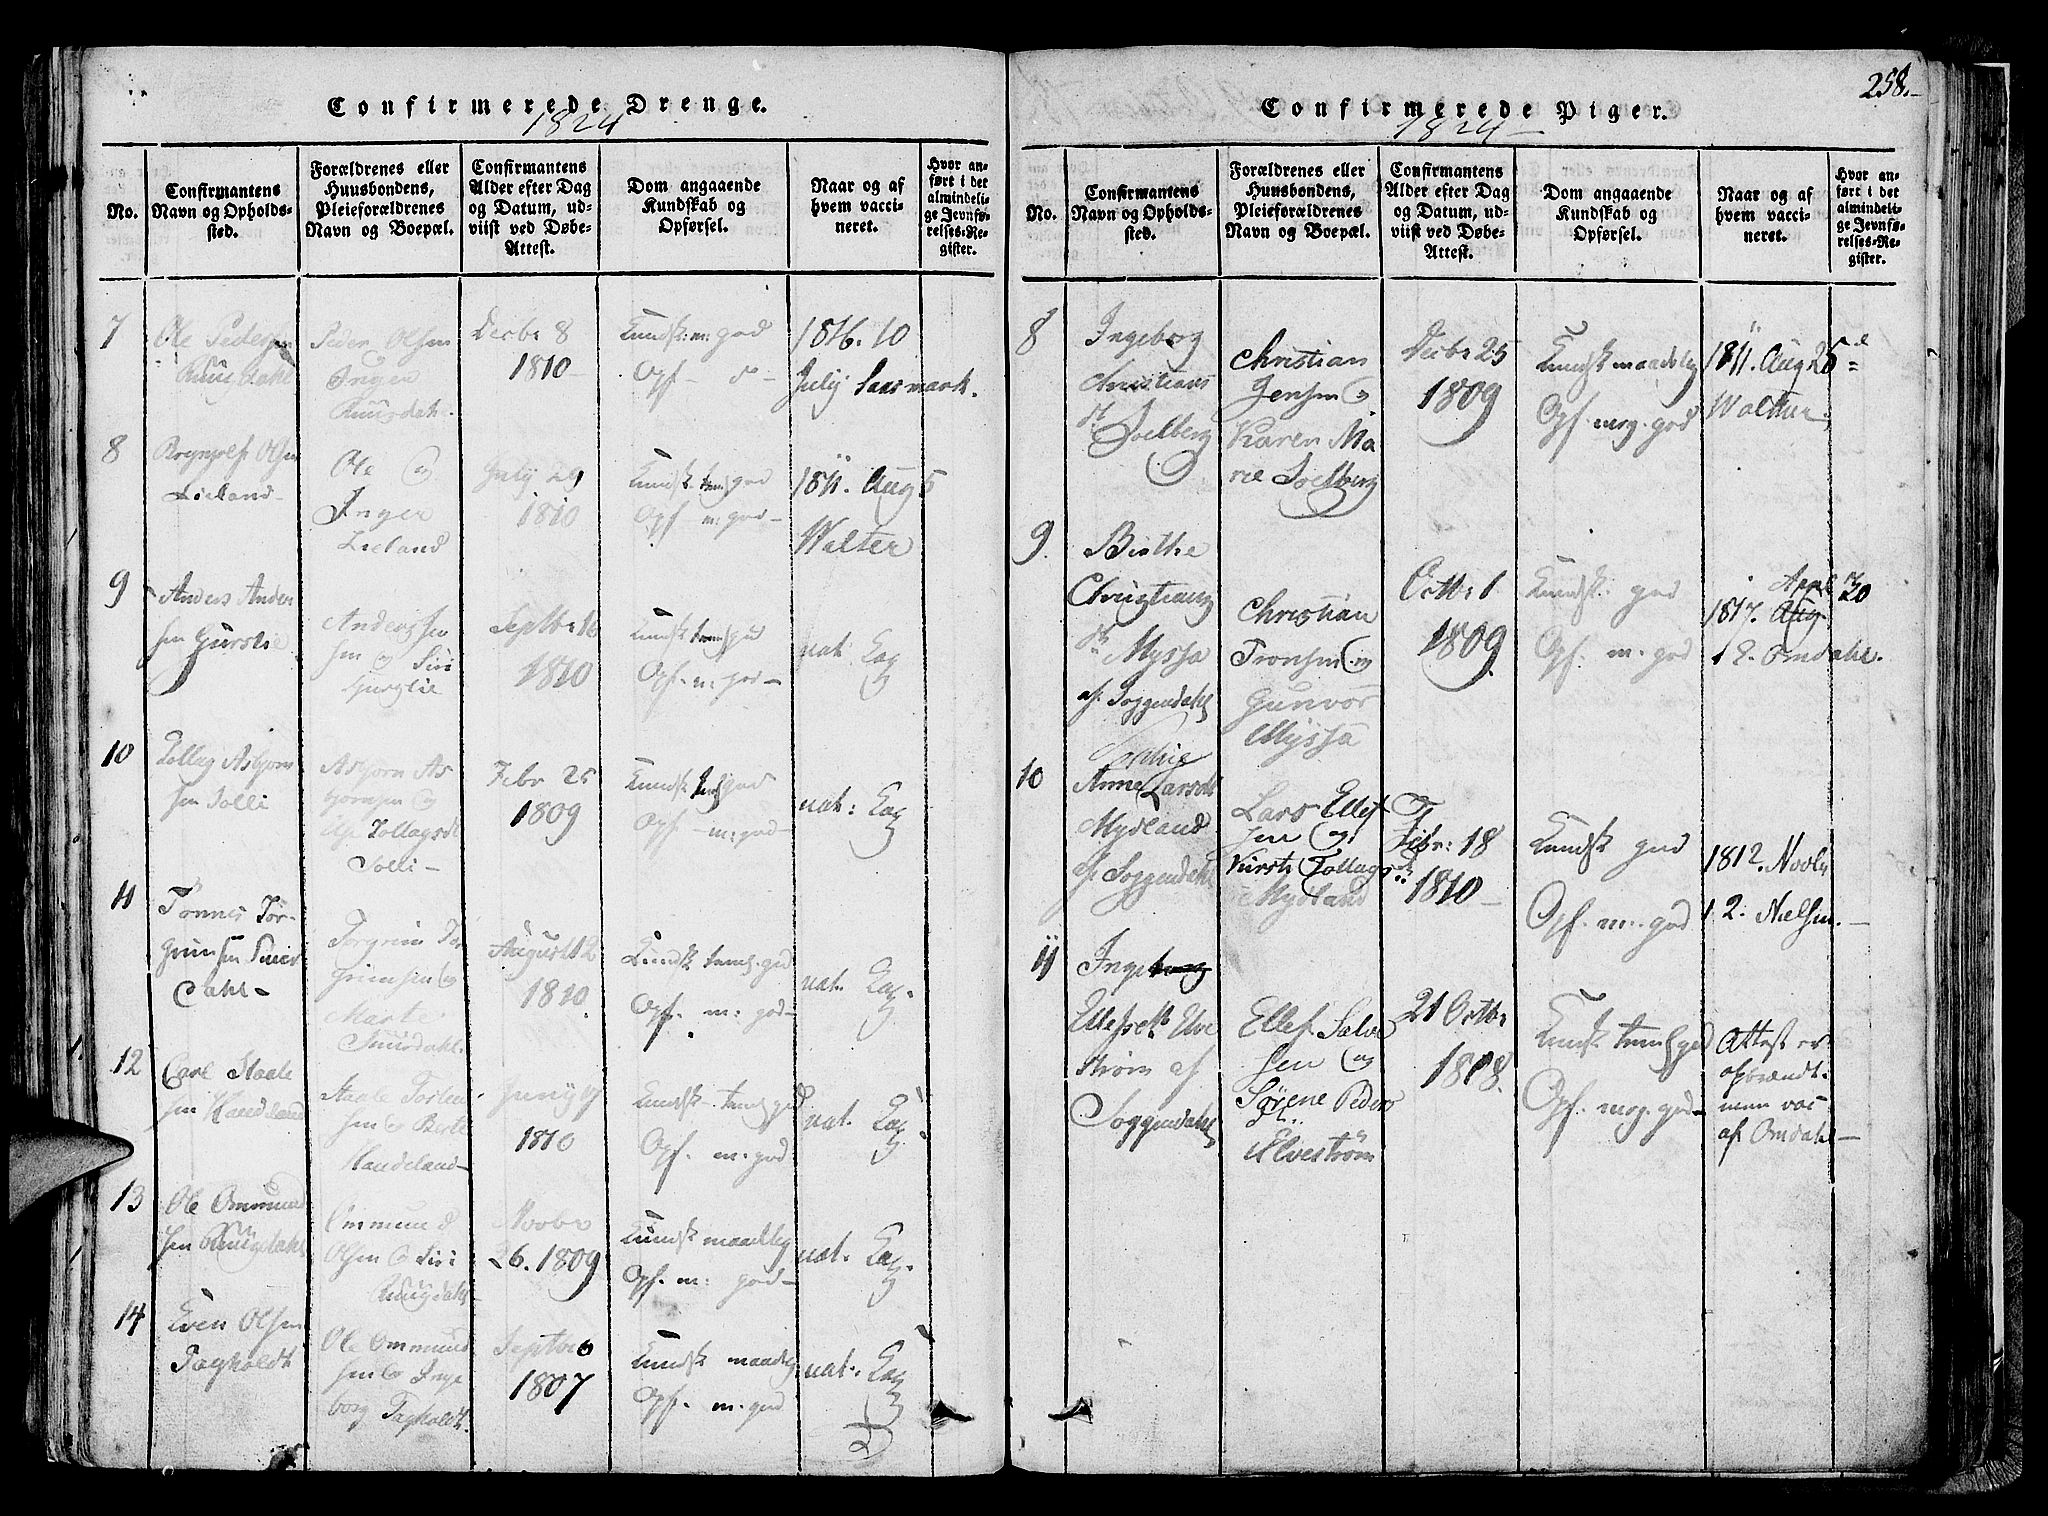 Confirmerede Drenge.
1824
No.
Confirmantens
Navn og Opholds-
sted.
Forældrenes eller
Huusbondens,
Pleieforældrenes
Navn og Boepæl.
Confirmantens
Alder efter Dag
og Datum, ud-
viist ved Døbe-
Attest.
Dom angaaende
Kundskab og
Opførsel.
Naar og af
hvem vacci-
neret.
Hvor an-
ført i det
almindeli-
ge Jevnfø-
relses-Re-
gister.
7
Ole Pedersen
Ruusdahl
Peder Olsen
og
Inger
Ruusdahl.
Decbr 8
1810
Kundsk: m: god
Opf - d -
1816. 10
July Saasmark.
8
Brynjolf Olsen
Lieland
Ole og
Inger
Lieland
July 29
1810
Kundsk. teml god
Opf - m: god -
1811. Aug 5
Walter
9
Anders Ander
sen
Anders
sen og Siri
Septbr 16
1810
Kundsk teml god
Opf. m: god -
nat. Kop
10
Tollag Asbjørn
sen Solli
Asbjørn As
bjørnsen og
Tollagsdtr
Solli -
Febr 25
1809
Kundsk teml god
Opf - m: god -
nat: Kop
11
Tønnes Tør-
grimsen
Dahl -
Torgrim Tør
grimsen og
Marte
August 12
1810.
Kundsk teml. god
Opf. m: god -
nat. Kop.
12
Carl Staale
sen Handeland
Staale Torlen
sen og Berte
Handeland -
Juny 9
1810
Kundsk. teml god
Opf. m. god
nat. Kop.
13
Ole Ommund
sen Ruusdahl
Ommund
Olsen og Siri
Ruusdahl -
Novbr
26. 1809
Kundsk maadelig
Opf. m: god -
nat. Kop.
14
Even Olsen
Tagholdt
Ole Ommund
sen og Inge
borg Tagholdt.
Septbr 6
1807
Kundsk maadelig
Opf. m. god
nat. Kop
258.
Confirmerede Piger.
1824 -
No.
Confirmantens
Navn og Opholds-
sted.
Forældrenes eller
Huusbondens,
Pleieforældrenes
Navn og Boepæl.
Confirmantens
Alder efter Dag
og Datum, ud-
viist ved Døbe-
Attest.
Dom angaaende
Kundskab og
Opførsel.
Naar og af
hvem vacci-
neret.
Hvor an-
ført i det
almindeli-
ge Jevnfø-
relses-Re-
gister.
8
Ingeborg
Christians
dr
Soelberg
Christian
Jensen og
Karen Ma
rie Soelberg
Decbr 25
1809
Kundsk maadelig
Opf. mog. god
1811. Aug 25
Walter
9.
Birthe
Christians
dr Myssa
af Soggendahl
Christian
Tronsen og
Gunvor
Myssa
Octbr 1
1809.
Kundsk: god
Opf. m. god
April 20
1817. Aug
12. Omdahl.
10
Anne Larsdtr
Mydland
af Soggendahl
Lars Ellef
sen og
Kirsti Tollagsdr
Mydland
Febr: 18
1810 -
Kundsk god
Opf. m: god
1812. Novbr
12. Nielsen. -
11
Ingeborg
Ellefsdtr Elve
strøm af
Soggendahl
Ellef Salve
sen og
Sørene Peders
dr.
Elvestrøm
21 Octbr
1808.
Kundsk teml god
Opf. mog. god -
Attest er
opbrændt.
men var
af Omdahl -